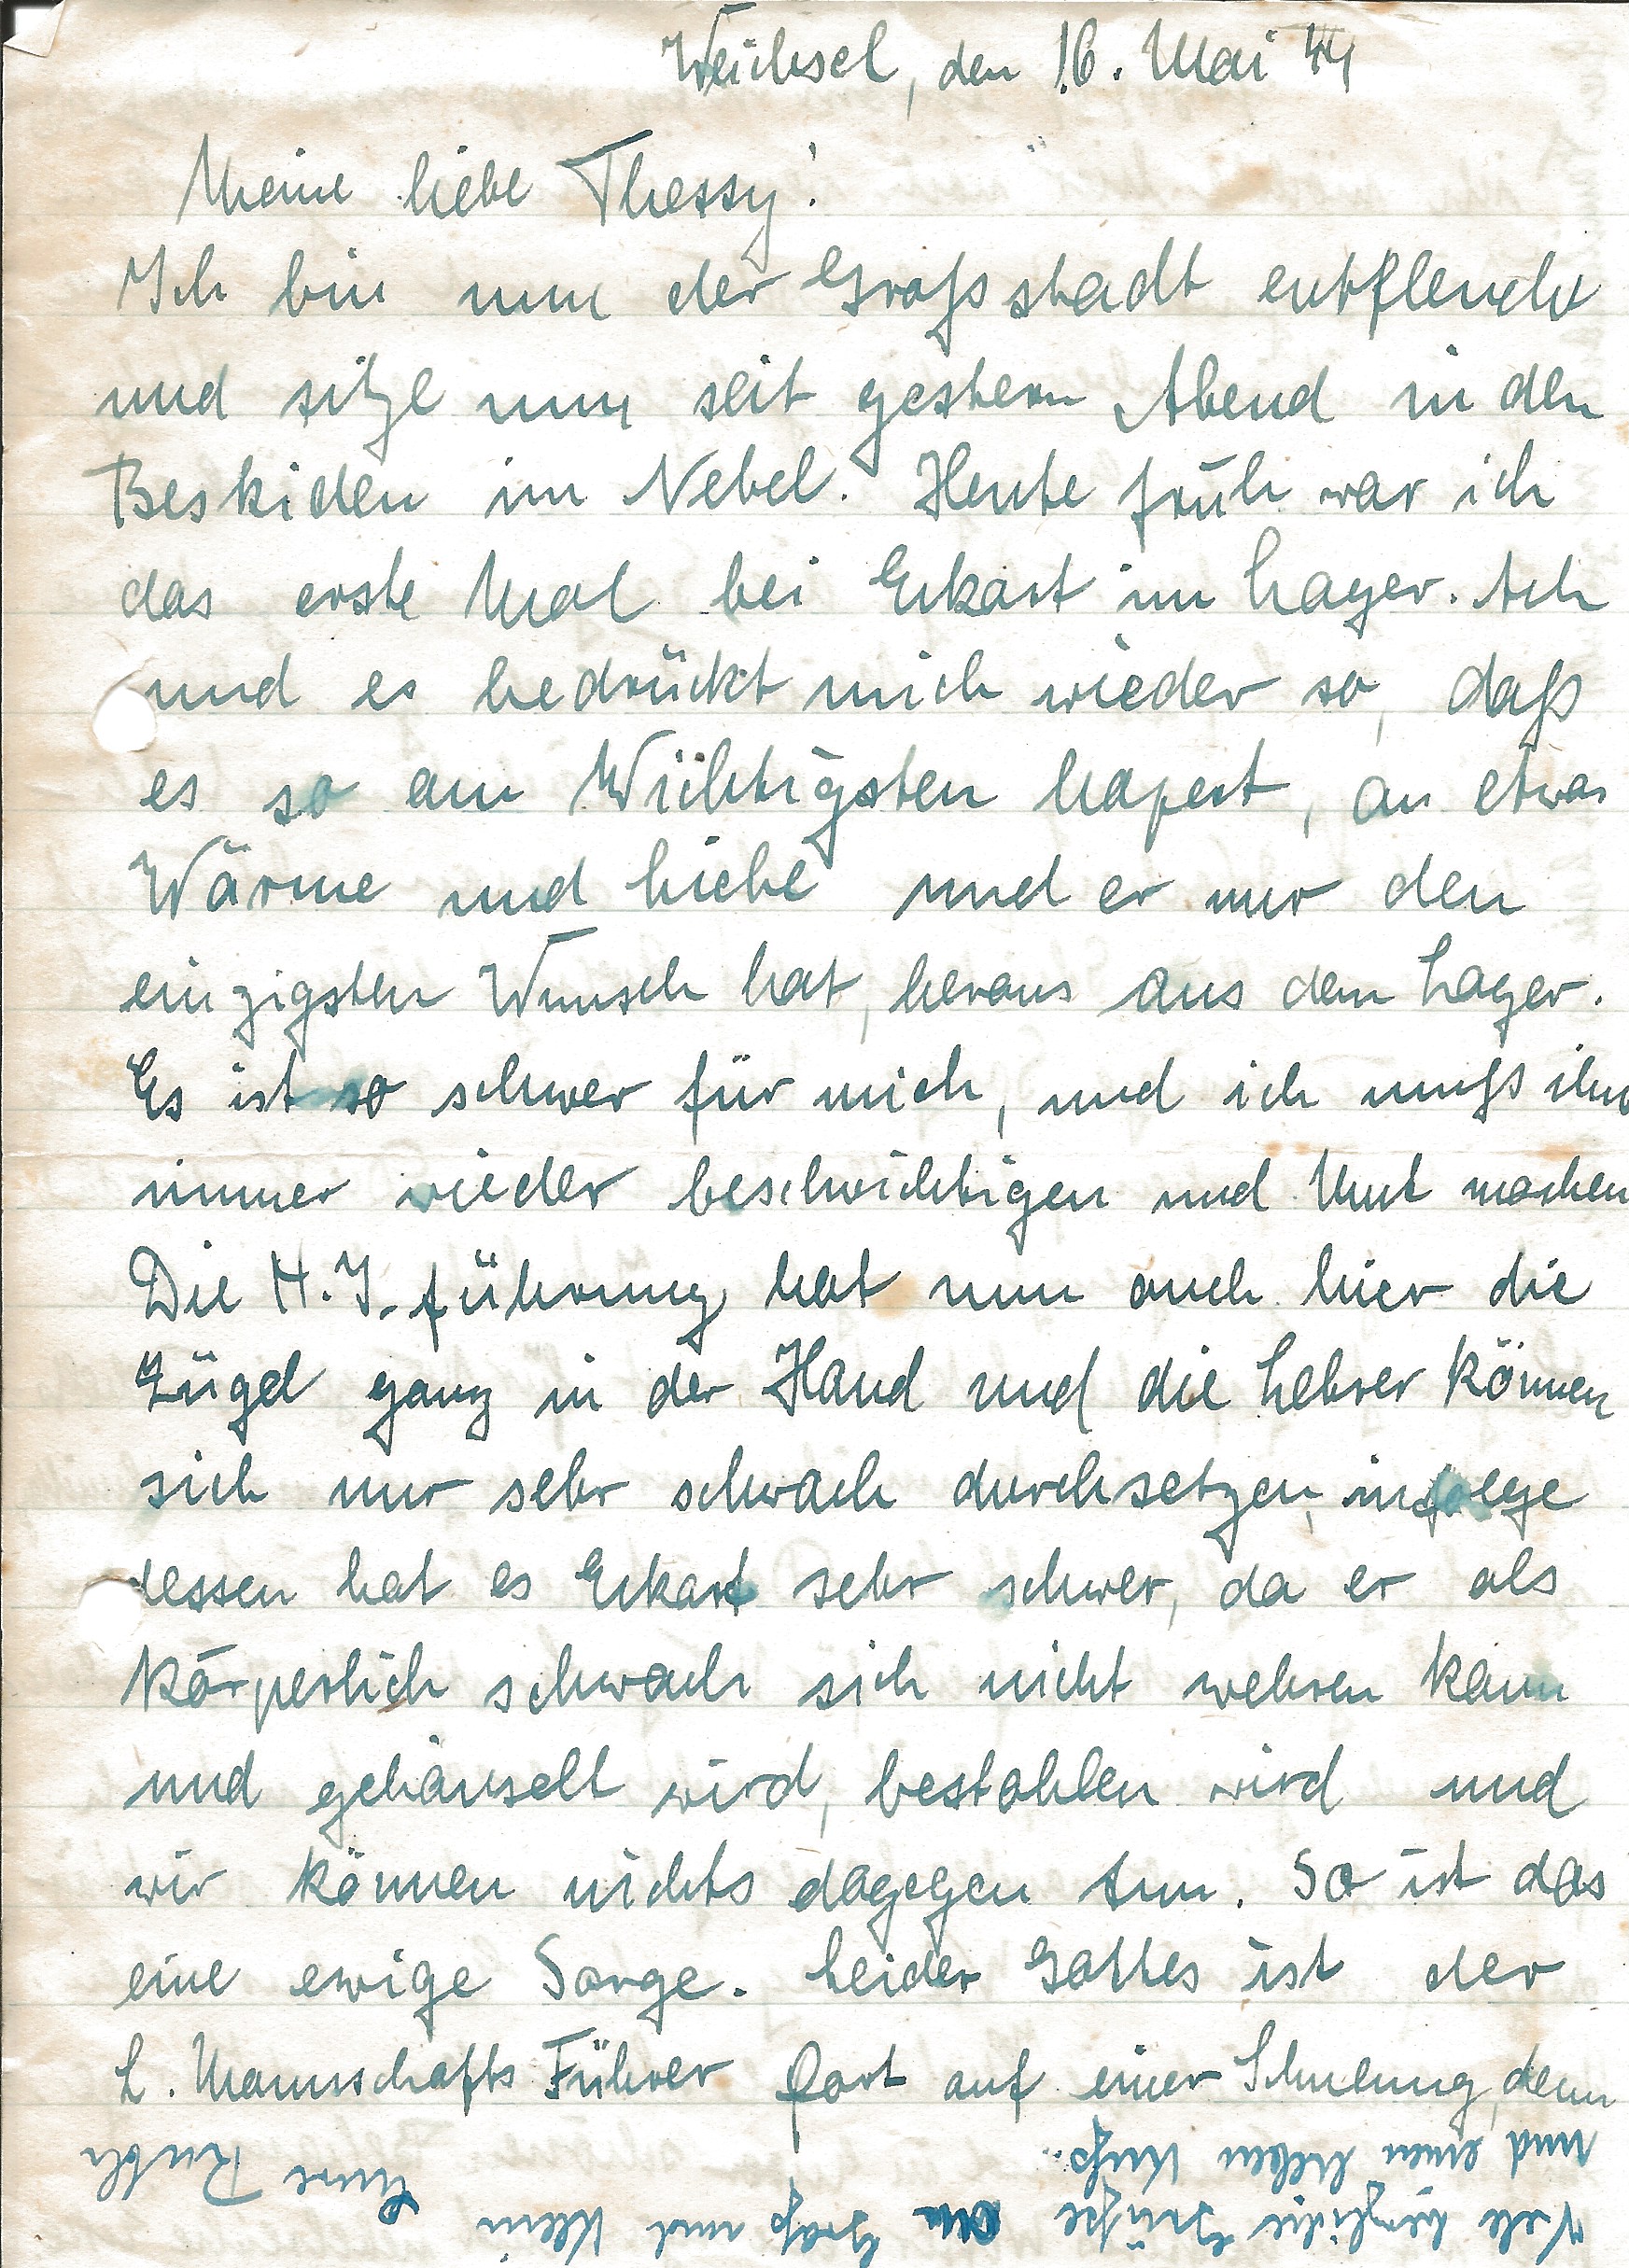 Weichsel, den 16. Mai 44
Meine liebe Thessy!
Ich bin nun der Großstadt entfleucht
und sitze nun seit gestern Abend in den
Beskiden im Nebel. Heute früh war ich
das erste Mal bei Eckart im Lager. Ach
und es bedrückt mich wieder so, daß
es so am Wichtigsten hapert, an etwas
Wärme und Liebe und er nur den
einzigsten Wunsch hat, heraus aus dem Lager.
Es ist so schwer für mich, und ich muß ihm
immer wieder beschwichtigen und Mut machen
Die H.J.führung hat nun auch hier die
Zügel ganz in der Hand und die Lehrer können
sich nur sehr schwach durchsetzen, infolge
dessen hat es Eckart sehr schwer, da er als
körperlich schwach sich nicht wehren kann
und gehänselt wird, bestohlen wird und
wir können nichts dagegen tun. So ist das
eine ewige Sorge. Leider Gottes ist der
L. Mannschafts Führer fort auf einer Schulung, denn
Viele herzliche Grüße an Groß und Klein
und einen lieben Kuß. Eure Ruth